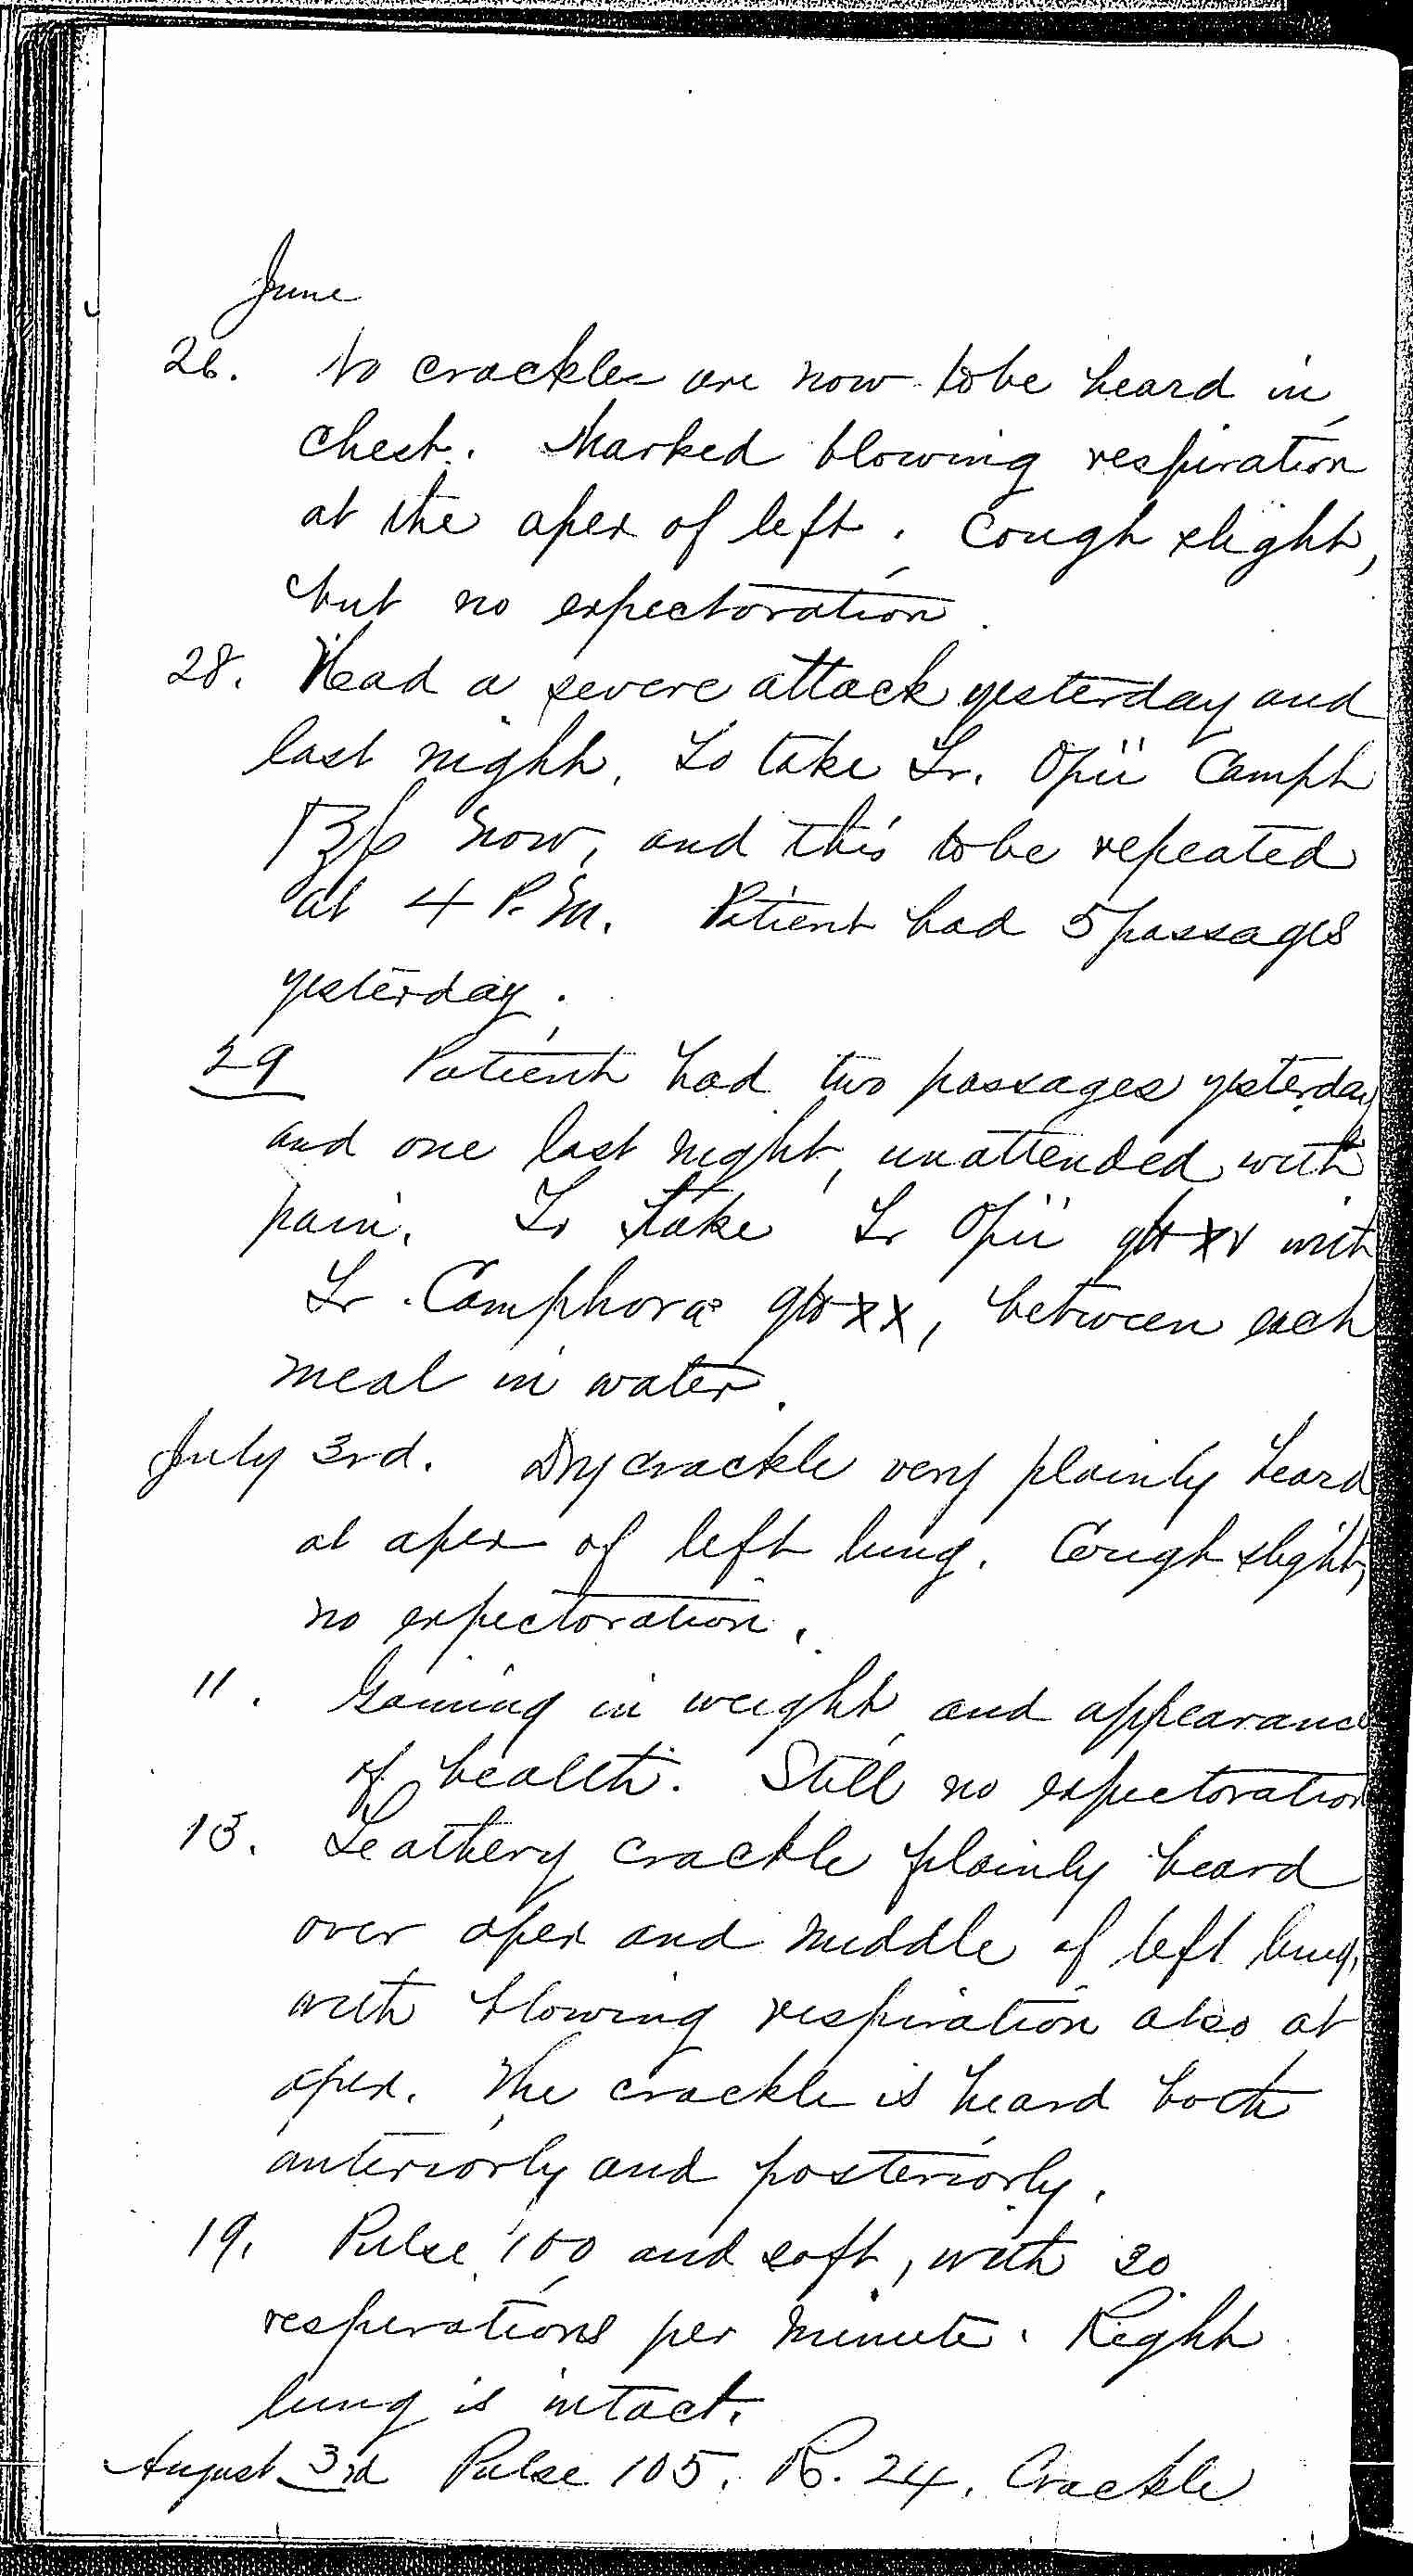 June
26. No crackles are now to be heard in
chest. Marked blowing respiration
at the apex of left. Cough slight,
but no expectoration.
28. Had a severe attack yesterday and
last night. To take Tr. Opii Camph
now, and this to be repeated
at 4 P.M. Patient had 5 passages
yesterday.
29 Patient had two passages yesterday
and one last night, unattended with
pain. To take Tr Opii gtt xv with
Tr. Camphorae gtt xx, between each
meal in water.
July 3rd. Dry crackle very plainly heard
at apex of left lung. Cough slight,
no expectoration.
11. Gaining in weight and appearance
of health. Still no expectoration
13. Leathery crackle plainly heard
over apex and middle of left lung,
with blowing respiration also at
apex. The crackle is heard both
anteriorly and posteriorly.
19. Pulse 100 and soft, with 20
respirations per minute. Right
lung is intact.
August 3rd Pulse 105. R. 24. Crackle